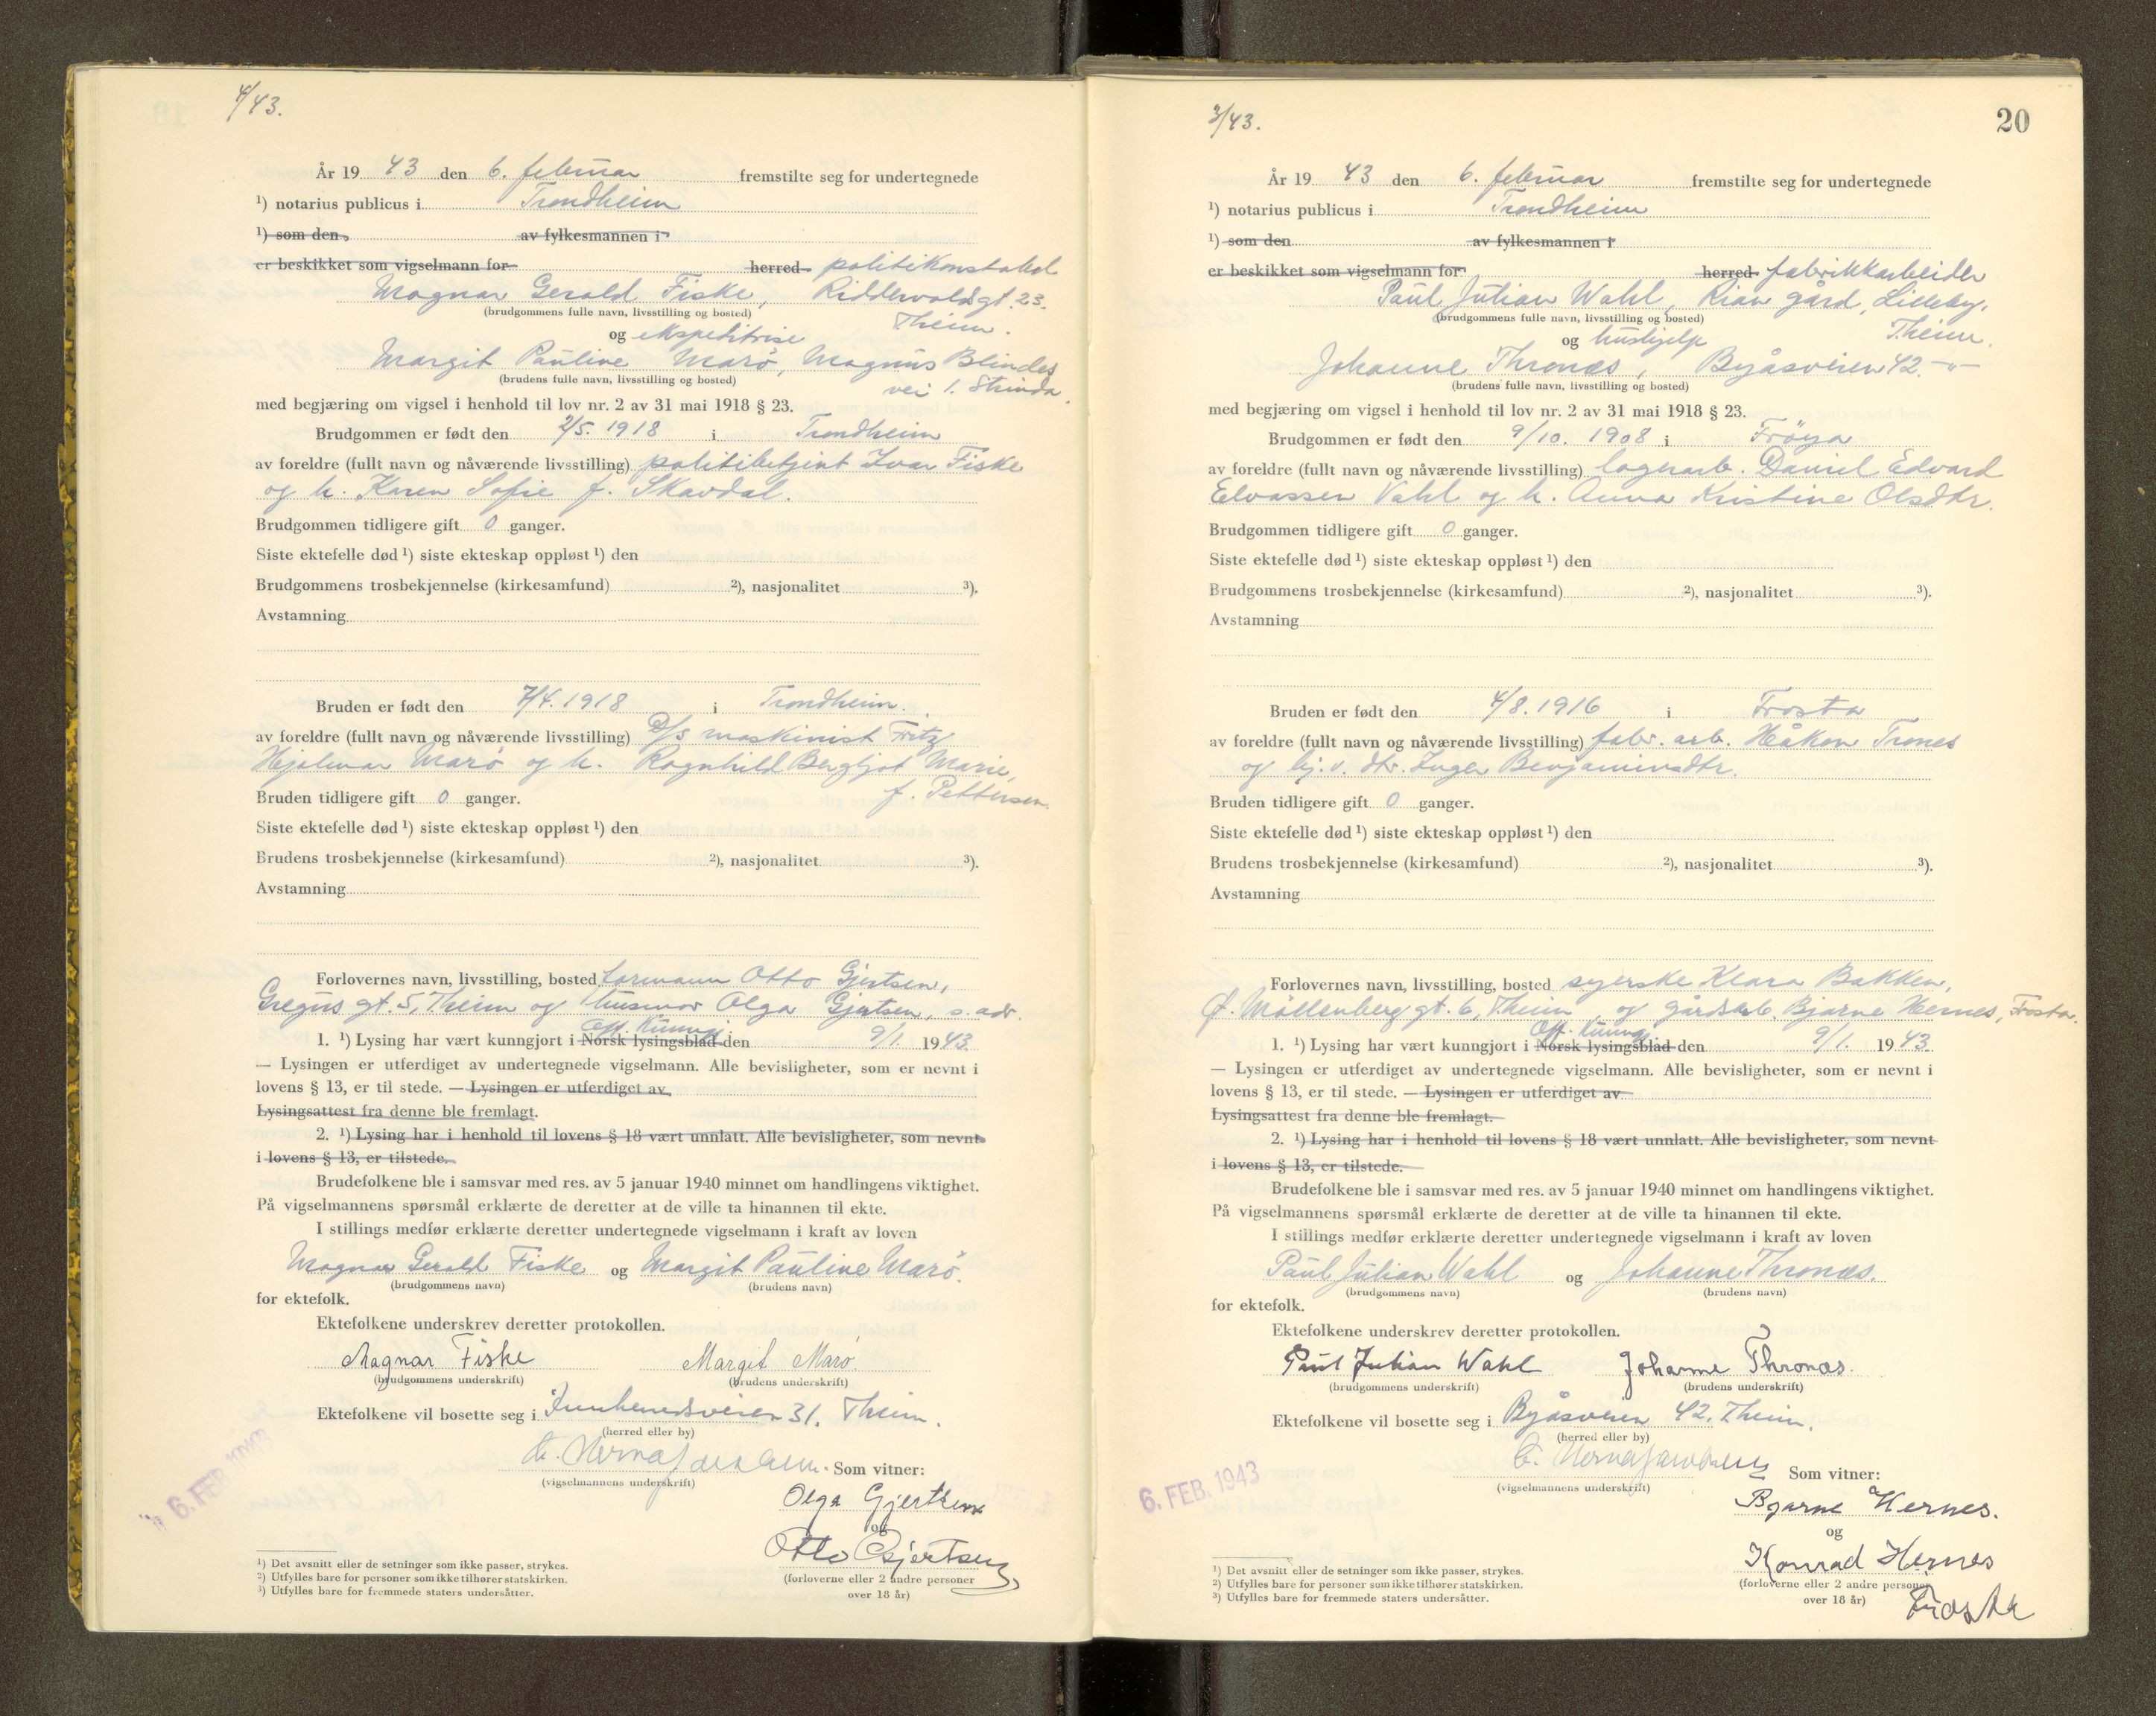 4/43.
År 19 43 den 6. februar fremstilte seg for undertegnede
¹) notarius publicus i Trondheim
¹) som den av fylkesmannen i
er beskikket som vigselmann for herred politikonstabel
Magnar Gerald Fiske, Riddervoldsgt. 23.
(brudgommens fulle navn, livsstilling og bosted)
Theim.
og ekspeditrise
Margit Pauline Marø, Magnus Blindes
(brudens fulle navn, livsstilling og bosted)
vei 1. Strinda.
med begjæring om vigsel i henhold til lov nr. 2 av 31 mai 1918 § 23.
Brudgommen er født den 2/5. 1918 i Trondheim
av foreldre (fullt navn og nåværende livsstilling) politibetjent Ivar Fiske
og h. Karen Sofie f. Skavdal.
Brudgommen tidligere gift 0 ganger.
Siste ektefelle død ¹) siste ekteskap oppløst ¹) den
Brudgommens trosbekjennelse (kirkesamfund) ²), nasjonalitet ³).
Avstamning
Bruden er født den 7/4. 1918 i Trondheim.
av foreldre (fullt navn og nåværende livsstilling) D/s maskinist Fritz
Hjalmar Marø og h. Ragnhild Bergljot Marie,
f. Pettersen.
Bruden tidligere gift 0 ganger.
Siste ektefelle død ¹) siste ekteskap oppløst ¹) den
Brudens trosbekjennelse (kirkesamfund) ²), nasjonalitet ³).
Avstamning
Forlovernes navn, livsstilling, bosted Lormann Otto Gjertsen,
Gregus gt. 5, Theim og husmor Olga Gjertsen, s. adr.
Off. Kunngj.
1. ¹) Lysing har vært kunngjort i Norsk lysingsblad den 9/1. 1943.
— Lysingen er utferdiget av undertegnede vigselmann. Alle bevisligheter, som er nevnt i
lovens § 13, er til stede. — Lysingen er utferdiget av
Lysingsattest fra denne ble fremlagt.
2. ¹) Lysing har i henhold til lovens § 18 vært unnlatt. Alle bevisligheter, som nevnt
i lovens § 13, er tilstede.
Brudefolkene ble i samsvar med res. av 5 januar 1940 minnet om handlingens viktighet.
På vigselmannens spørsmål erklærte de deretter at de ville ta hinannen til ekte.
I stillings medfør erklærte deretter undertegnede vigselmann i kraft av loven
Magnar Gerald Fiske og Margit Pauline Marø.
(brudgommens navn) (brudens navn)
for ektefolk.
Ektefolkene underskrev deretter protokollen.
Magnar Fiske Margit Marø
(brudgommens underskrift) (brudens underskrift)
Ektefolkene vil bosette seg i 31. Theim.
(herred eller by)
Som vitner:
(vigselmannens underskrift)
6. FEB. 1943
Olga Gjertsen
og
Otto Gjertsen
(forloverne eller 2 andre personer
over 18 år)
¹) Det avsnitt eller de setninger som ikke passer, strykes.
²) Utfylles bare for personer som ikke tilhører statskirken.
³) Utfylles bare for fremmede staters undersåtter.
3/43.
20
År 19 43 den 6. februar fremstilte seg for undertegnede
¹) notarius publicus i Trondheim
¹) som den av fylkesmannen i
er beskikket som vigselmann for herred fabrikkarbeider
Paul Julian Wahl, Rian gård, Lilleby,
(brudgommens fulle navn, livsstilling og bosted)
Theim.
og hushjelp
Johanne Thronæs, Byåsveien 42. -"-
(brudens fulle navn, livsstilling og bosted)
med begjæring om vigsel i henhold til lov nr. 2 av 31 mai 1918 § 23.
Brudgommen er født den 9/10. 1908 i Frøya
av foreldre (fullt navn og nåværende livsstilling) lagerarb. Daniel Edvard
Edvassen Vahl og h. Anna Kristine Olsdtr.
Brudgommen tidligere gift 0 ganger.
Siste ektefelle død ¹) siste ekteskap oppløst ¹) den
Brudgommens trosbekjennelse (kirkesamfund) ²), nasjonalitet ³).
Avstamning
Bruden er født den 4/8. 1916 i Frosta
av foreldre (fullt navn og nåværende livsstilling) fabr. arb. Håkon Trones
og hj. v. dtr. Inger Benjaminsdtr.
Bruden tidligere gift 0 ganger.
Siste ektefelle død ¹) siste ekteskap oppløst ¹) den
Brudens trosbekjennelse (kirkesamfund) ²), nasjonalitet ³).
Avstamning
Forlovernes navn, livsstilling, bosted syerske Klara Bakken,
Ø. Møllenberg gt. 6, Theim og gårdsarb. Bjarne Hernes, Frosta.
Off. Kunngj.
1. ¹) Lysing har vært kunngjort i Norsk lysingsblad den 9/1. 1943.
— Lysingen er utferdiget av undertegnede vigselmann. Alle bevisligheter, som er nevnt i
lovens § 13, er til stede. — Lysingen er utferdiget av
Lysingsattest fra denne ble fremlagt.
2. ¹) Lysing har i henhold til lovens § 18 vært unnlatt. Alle bevisligheter, som nevnt
i lovens § 13, er tilstede.
Brudefolkene ble i samsvar med res. av 5 januar 1940 minnet om handlingens viktighet.
På vigselmannens spørsmål erklærte de deretter at de ville ta hinannen til ekte.
I stillings medfør erklærte deretter undertegnede vigselmann i kraft av loven
Paul Julian Wahl og Johanne Thronæs.
(brudgommens navn) (brudens navn)
for ektefolk.
Ektefolkene underskrev deretter protokollen.
Paul Julian Wahl Johanne Thronæs.
(brudgommens underskrift) (brudens underskrift)
Ektefolkene vil bosette seg i Byåsveien 42. Theim.
(herred eller by)
Som vitner:
(vigselmannens underskrift)
6. FEB. 1943
Bjarne Hernes.
og
Konrad Hernes
(forloverne eller 2 andre personer
over 18 år)
Frosta
¹) Det avsnitt eller de setninger som ikke passer, strykes.
²) Utfylles bare for personer som ikke tilhører statskirken.
³) Utfylles bare for fremmede staters undersåtter.